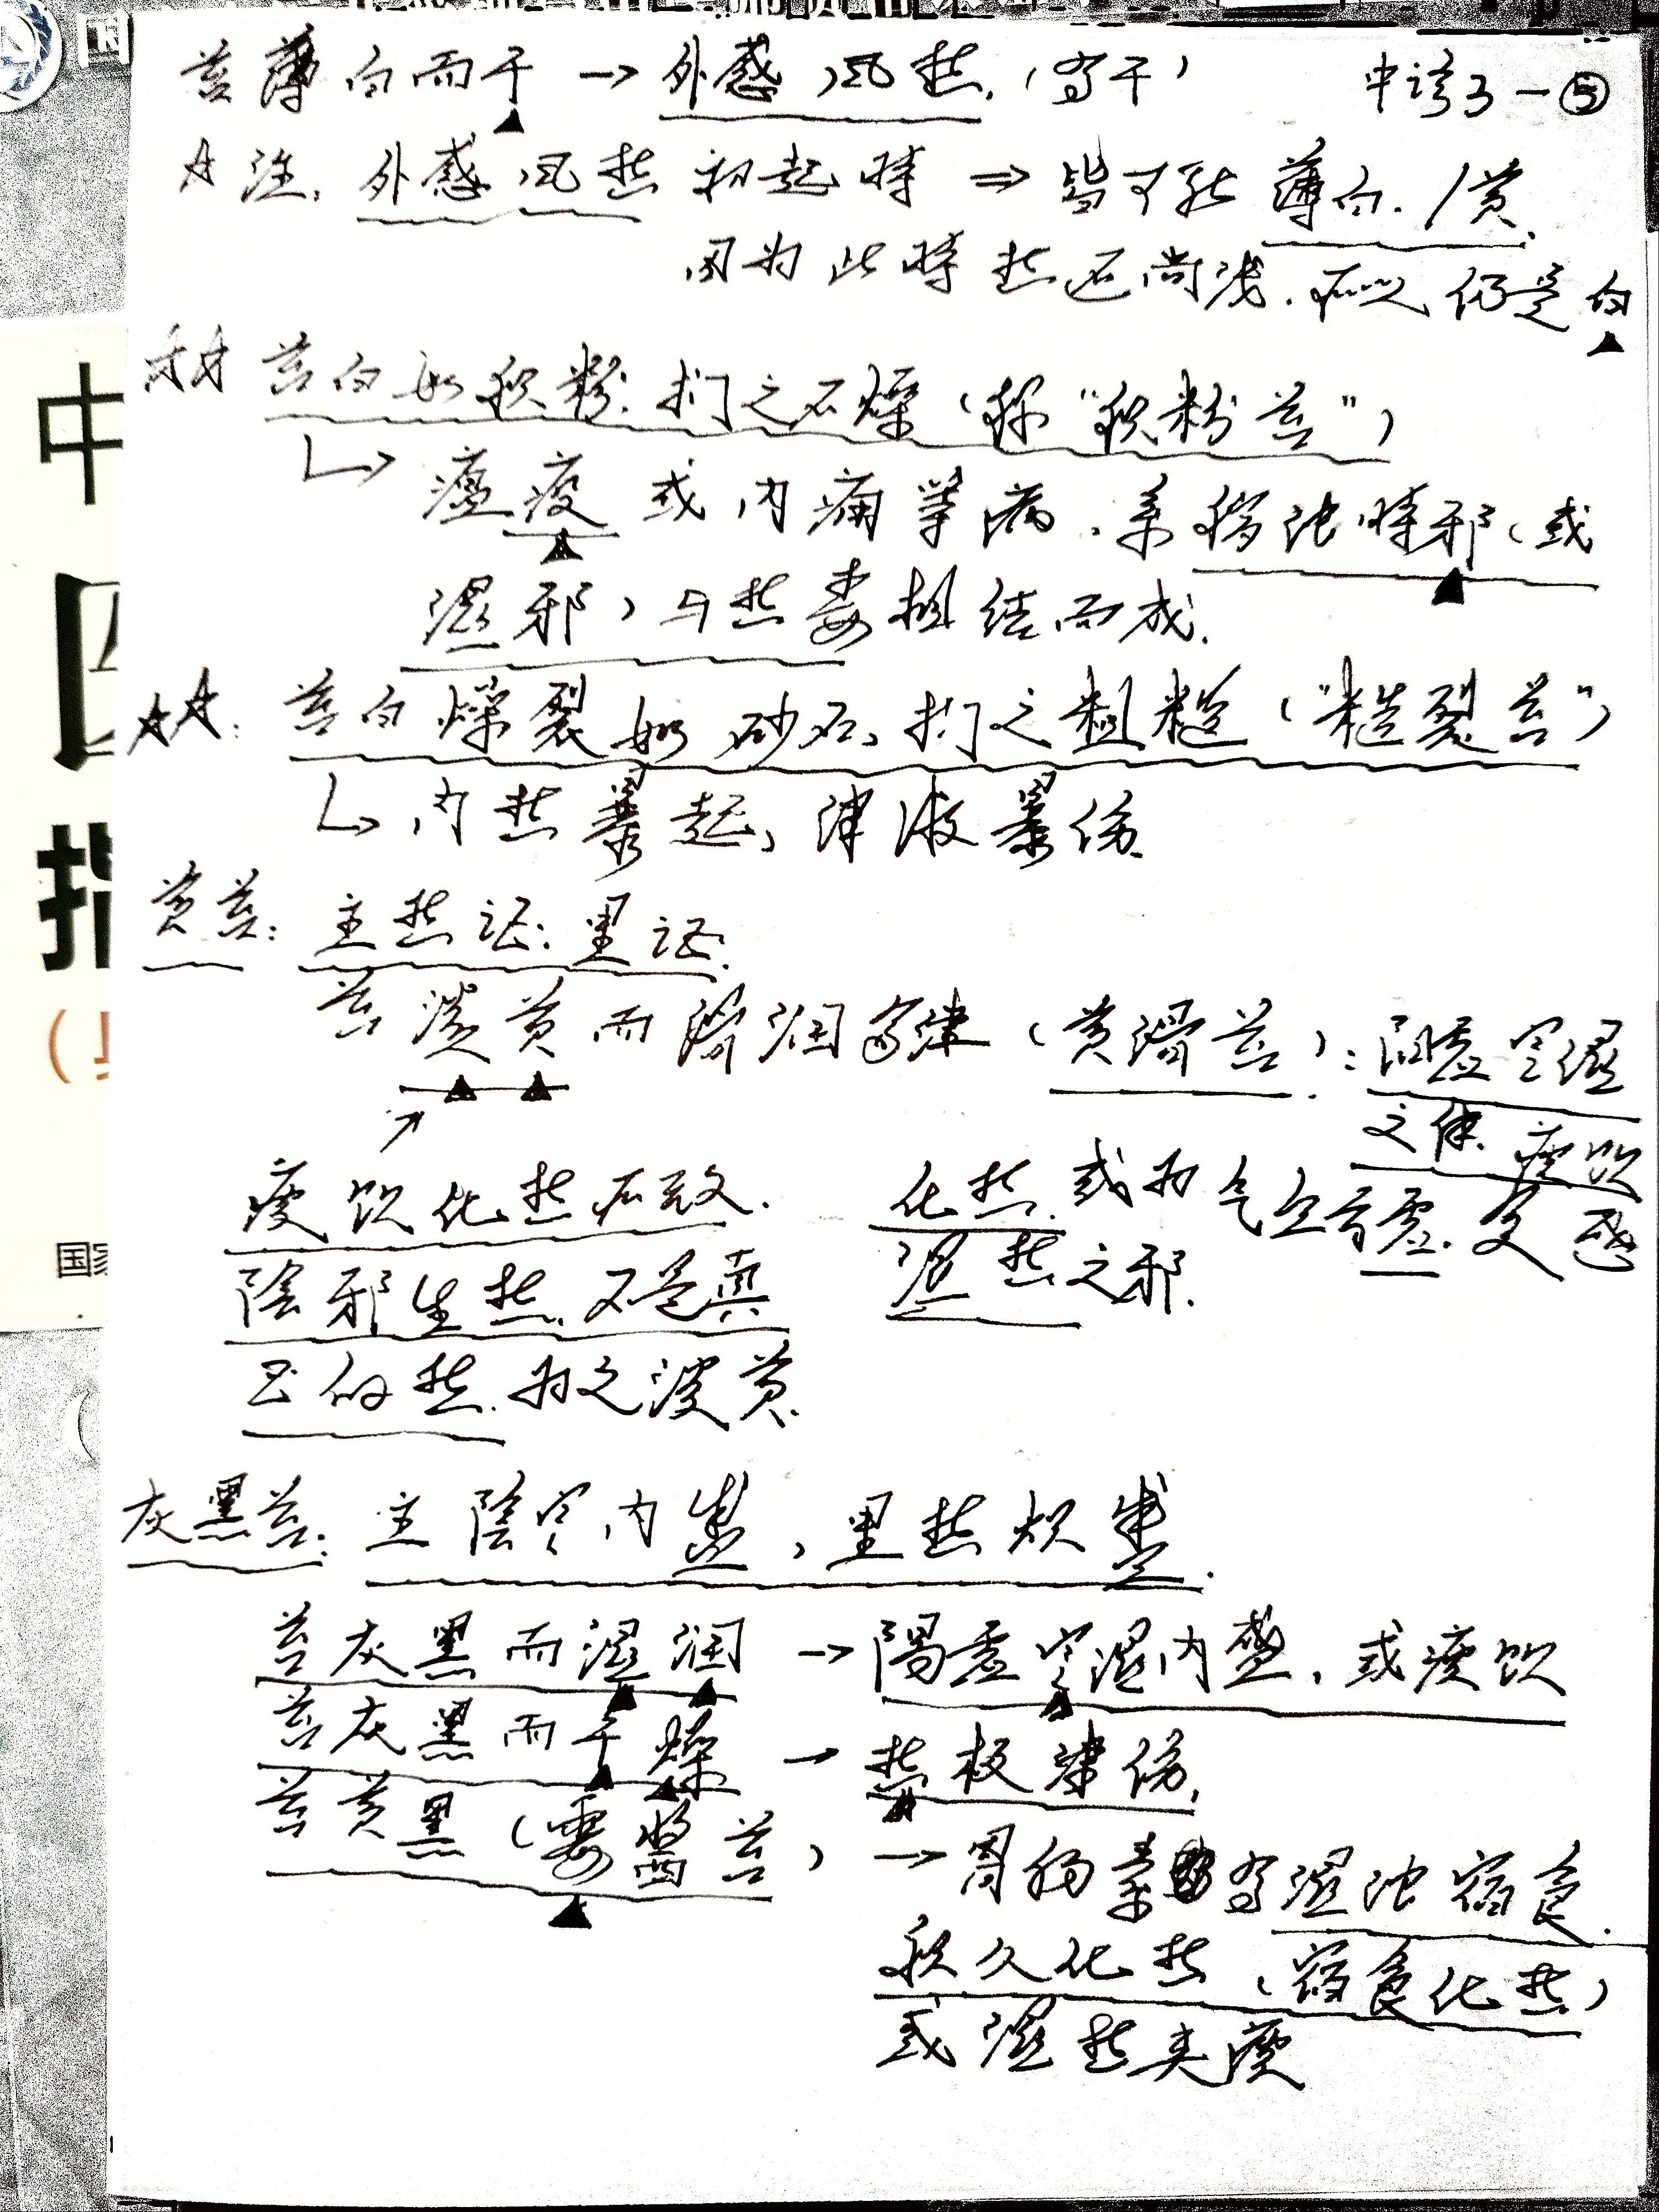 苔薄白而干 → 外感风热，(多干)
中诊3-⑤
☆注：外感风热初起时 ⇒ 皆可能薄白./黄.
因为此时热还尚浅.所以仍是白
☆☆ 苔白如积粉.扪之不燥(称"积粉苔")
瘟疫或内痈等病.系秽浊时邪(或
湿邪)与热毒相结而成.
☆☆: 苔白燥裂如砂石，扪之粗糙("糙裂苔")
内热暴起，津液暴伤.
黄苔: 主热证.里证.
苔淡黄而滑润多津(黄滑苔): 阳虚寒湿
之体.痰饮
化热.或为气血亏虚.复感
湿热之邪.
痰饮化热所致.
阴邪生热.不是真
正的热.为之淡黄.
灰黑苔: 主阴寒内盛，里热炽盛.
苔灰黑而湿润 → 阳虚寒湿内盛.或痰饮
苔灰黑而干燥 → 热极津伤.
苔黄黑(霉酱苔) → 胃肠素多湿浊宿食.
积久化热(宿食化热)
或湿热夹痰
中
指
国家
国